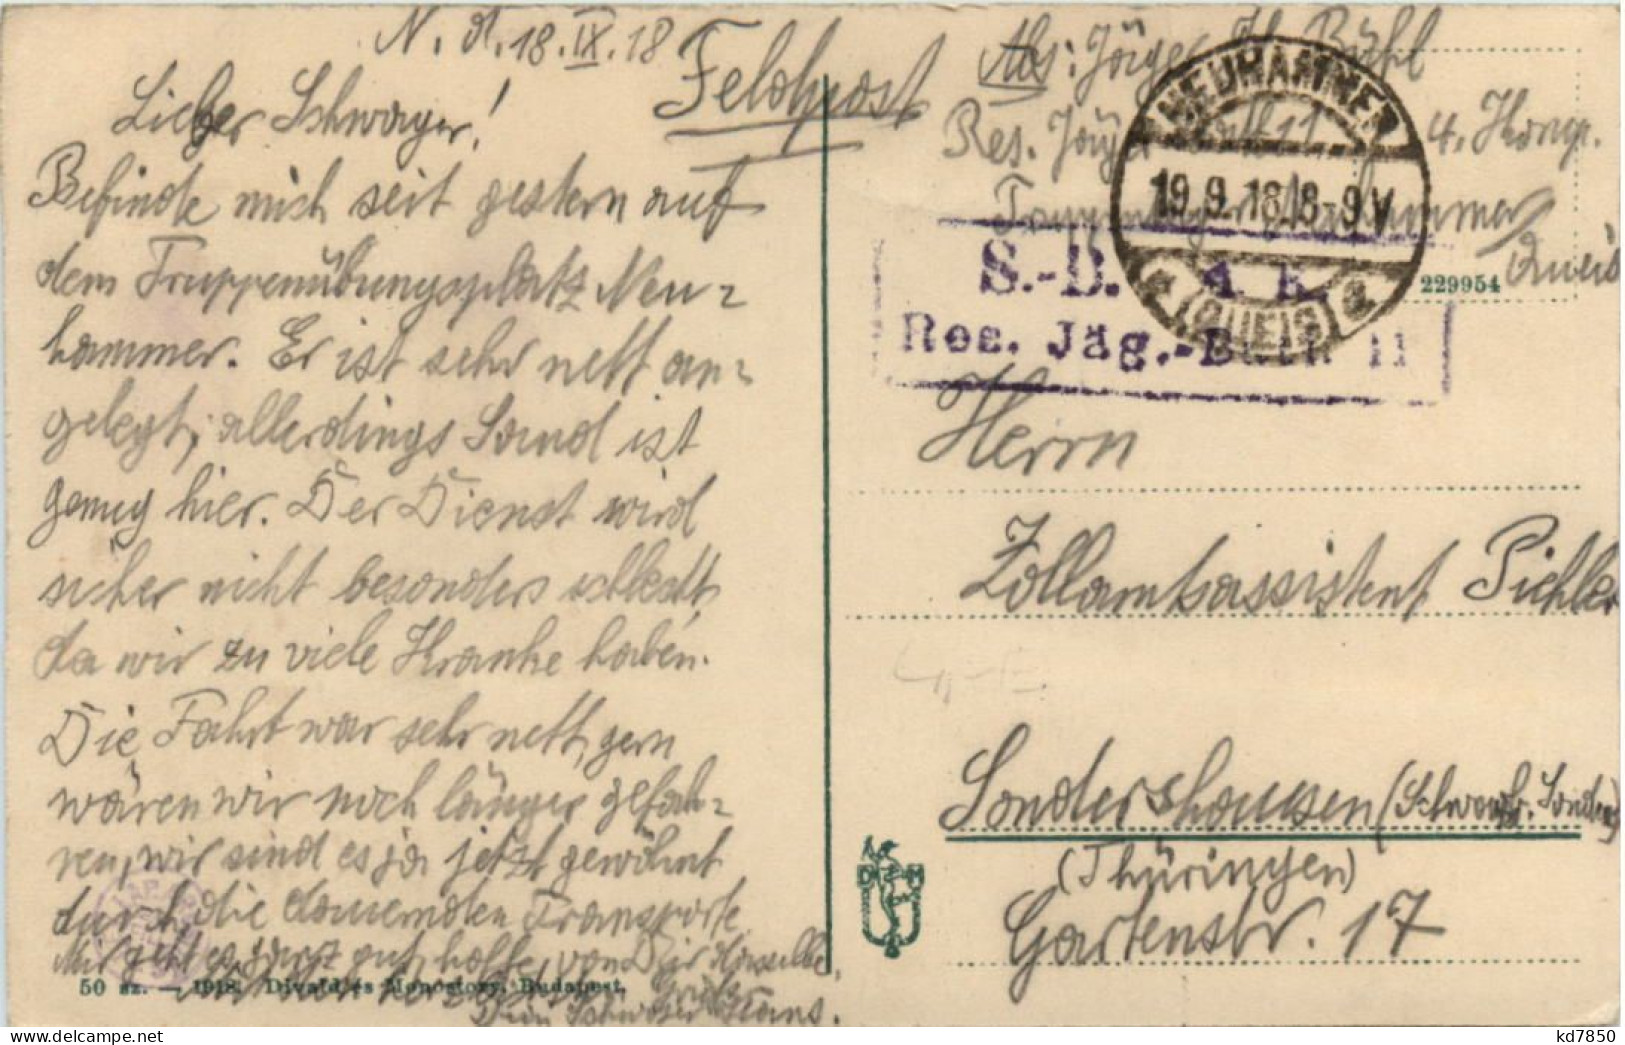 N. d. 18. IX. 18
Feldpost
Lieber Schwager!
Befinde mich seit gestern auf
dem Truppenübungsplatz Neu-
hammer. Er ist sehr nett an-
gelegt, allerdings Sand ist
genug hier. Der Dienst wird
sicher nicht besonders schlecht,
da wir zu viele Kranke haben.
Die Fahrt war sehr nett, gern
wären wir noch länger gefah-
ren, wir sind es ja jetzt gewöhnt
durch die dauernden Transporte.
Mir geht es ganz gut, hoffe von Dir dasselbe.
Dein Schwager Hans.
50 sz. — 1918. Divald és Monostory, Budapest.
Abs: Jäger H. Bühl
Res. Jäger Batl 11 4. Komp.
Neuhammer
Queis
NEUHAMMER
19.9.18.8-9V
* (QUEIS) a
S.-B.
Res. Jäg.-Batl. 11
229954
Herrn
Zollamtsassistent Pichler
Sondershausen (Schwarzb. Sonders
(Thüringen)
Gartenstr. 17
D M
kd7850